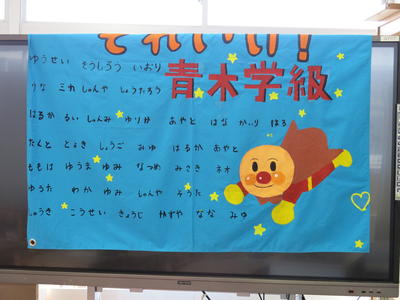 それいけ！
青木学級
ゆうせい そうしろう いおり
りな ミカ しゅんや しょうたろう
はるか るい しゅんみ ゆりか あやと はな かいり はる
たくと ともき しょうご みゆ はるか あやと
ももは ゆうま ゆみ なつめ みさき ネオ
ゆうた わか ゆみ しゅんや そうた
しゅうき こうせい きょうじ かずや なな みゆ